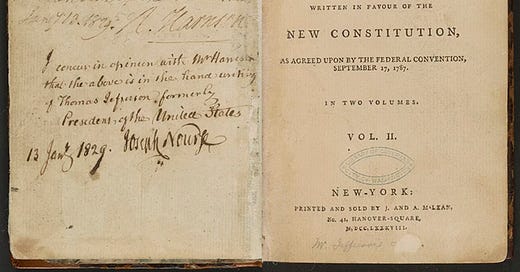 Jany 13. 1829. R. Harrison
I concur in opinion with Mr Harrison
that the above is in the hand writing
of Thomas Jefferson formerly
President of the United States
13 Jany. 1829. Joseph Nourse
WRITTEN IN FAVOUR OF THE
NEW CONSTITUTION,
AS AGREED UPON BY THE FEDERAL CONVENTION,
SEPTEMBER 17, 1787.
IN TWO VOLUMES.
VOL. II.
NEW-YORK:
PRINTED AND SOLD BY J. AND A. McLEAN,
No. 41, HANOVER-SQUARE,
M,DCC,LXXXVIII.
Mr. Jefferson's